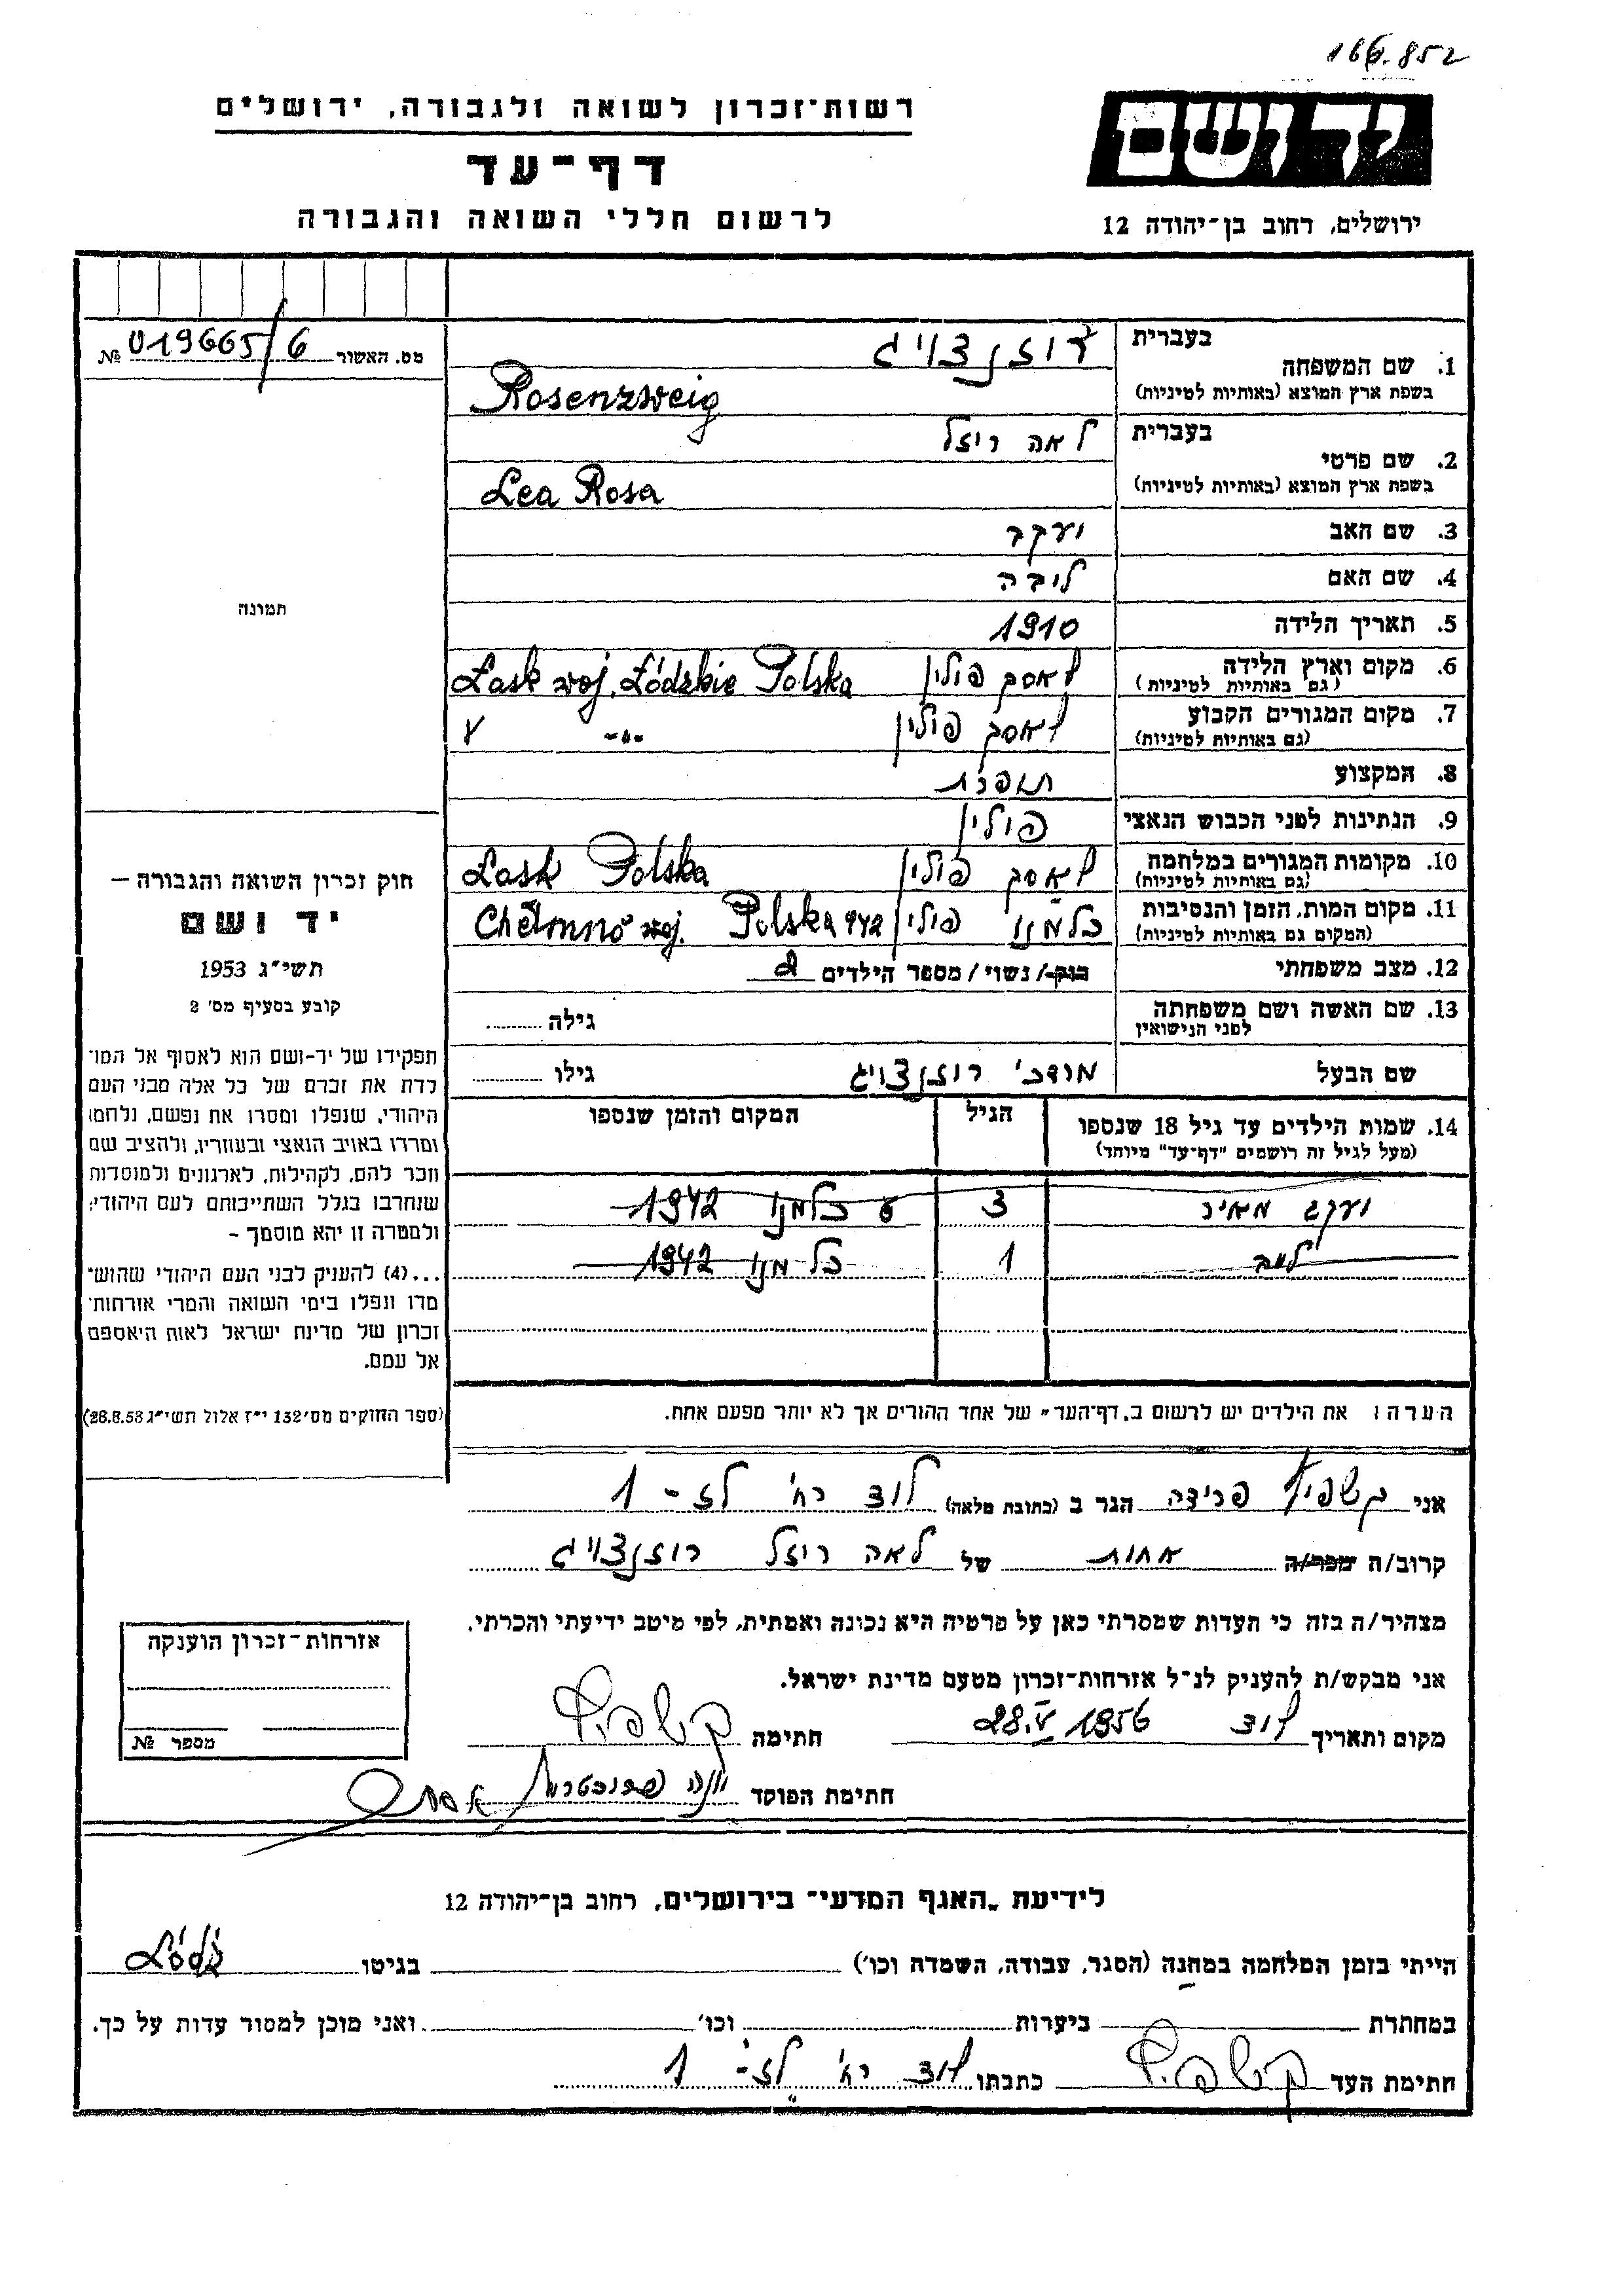 166.852
יד ושם
רשות־זכרון לשואה ולגבורה, ירושלים
דף־עד
לרשום חללי השואה והגבורה
ירושלים, רחוב בן־יהודה 12
מס. האשור 019665/6 №
בעברית רוזנצוויג
1. שם המשפחה
בשפת ארץ המוצא (באותיות לטיניות) Rosenzweig
בעברית לאה ריזל
2. שם פרטי
בשפת ארץ המוצא (באותיות לטיניות) Lea Rosa
3. שם האב יעקב
4. שם האם ליבה
תמונה
5. תאריך הלידה 1910
6. מקום וארץ הלידה לאסק פולין Łask woj. Łódzkie Polska
(גם באותיות לטיניות)
7. מקום המגורים הקבוע לאסק פולין -"-
(גם באותיות לטיניות)
8. המקצוע תופרת
9. הנתינות לפני הכבוש הנאצי פולין
10. מקומות המגורים במלחמה לאסק פולין Łask Polska
(גם באותיות לטיניות)
11. מקום המות, הזמן והנסיבות כלמנו פולין Chełmno woj. Polska 942
(המקום גם באותיות לטיניות)
12. מצב משפחתי רוק/ נשוי/ מספר הילדים 2
13. שם האשה ושם משפחתה גילה
לפני הנישואין
שם הבעל מרדכי רוזנצוויג גילו
14. שמות הילדים עד גיל 18 שנספו הגיל המקום והזמן שנספו
(מעל לגיל זה רושמים "דף־עד" מיוחד)
יעקב מאיר 3 כלמנו 1942
1 כלמנו 1942
הערה: את הילדים יש לרשום ב„דף־העד" של אחד ההורים אך לא יותר מפעם אחת.
חוק זכרון השואה והגבורה —
יד ושם
תשי"ג 1953
קובע בסעיף מס' 2
תפקידו של יד-ושם הוא לאסוף אל המו־
לדת את זכרם של כל אלה מבני העם
היהודי, שנפלו ומסרו את נפשם, נלחמו
ומרדו באויב הנאצי ובעוזריו, ולהציב שם
וזכר להם, לקהילות, לארגונים ולמוסדות
שנחרבו בגלל השתייכותם לעם היהודי;
ולמטרה זו יהא מוסמך –
...(4) להעניק לבני העם היהודי שהוש־
מדו ונפלו בימי השואה והמרי אזרחות־
זכרון של מדינת ישראל לאות היאספם
אל עמם.
(ספר החוקים מס' 132 י"ז אלול תשי"ג 28.8.53)
אני פרידה הגר ב (כתובת מלאה) לוד רח' לז - 1
קרוב/ה מכר/ה אחות של לאה ריזל רוזנצוויג
מצהיר/ה בזה כי העדות שמסרתי כאן על פרטיה היא נכונה ואמתית, לפי מיטב ידיעתי והכרתי.
אני מבקש/ת להעניק לנ"ל אזרחות־זכרון מטעם מדינת ישראל.
מקום ותאריך לוד 28.V 1956 חתימה
חתימת הפוקד
אזרחות־זכרון הוענקה
מספר №
לידיעת „האגף המדעי" בירושלים, רחוב בן־יהודה 12
הייתי בזמן המלחמה במחנה (הסגר, עבודה, השמדה וכו') בגיטו Łódź
במחתרת ביערות וכו' ואני מוכן למסור עדות על כך.
חתימת העד כתבתו לוד רח' לז - 1